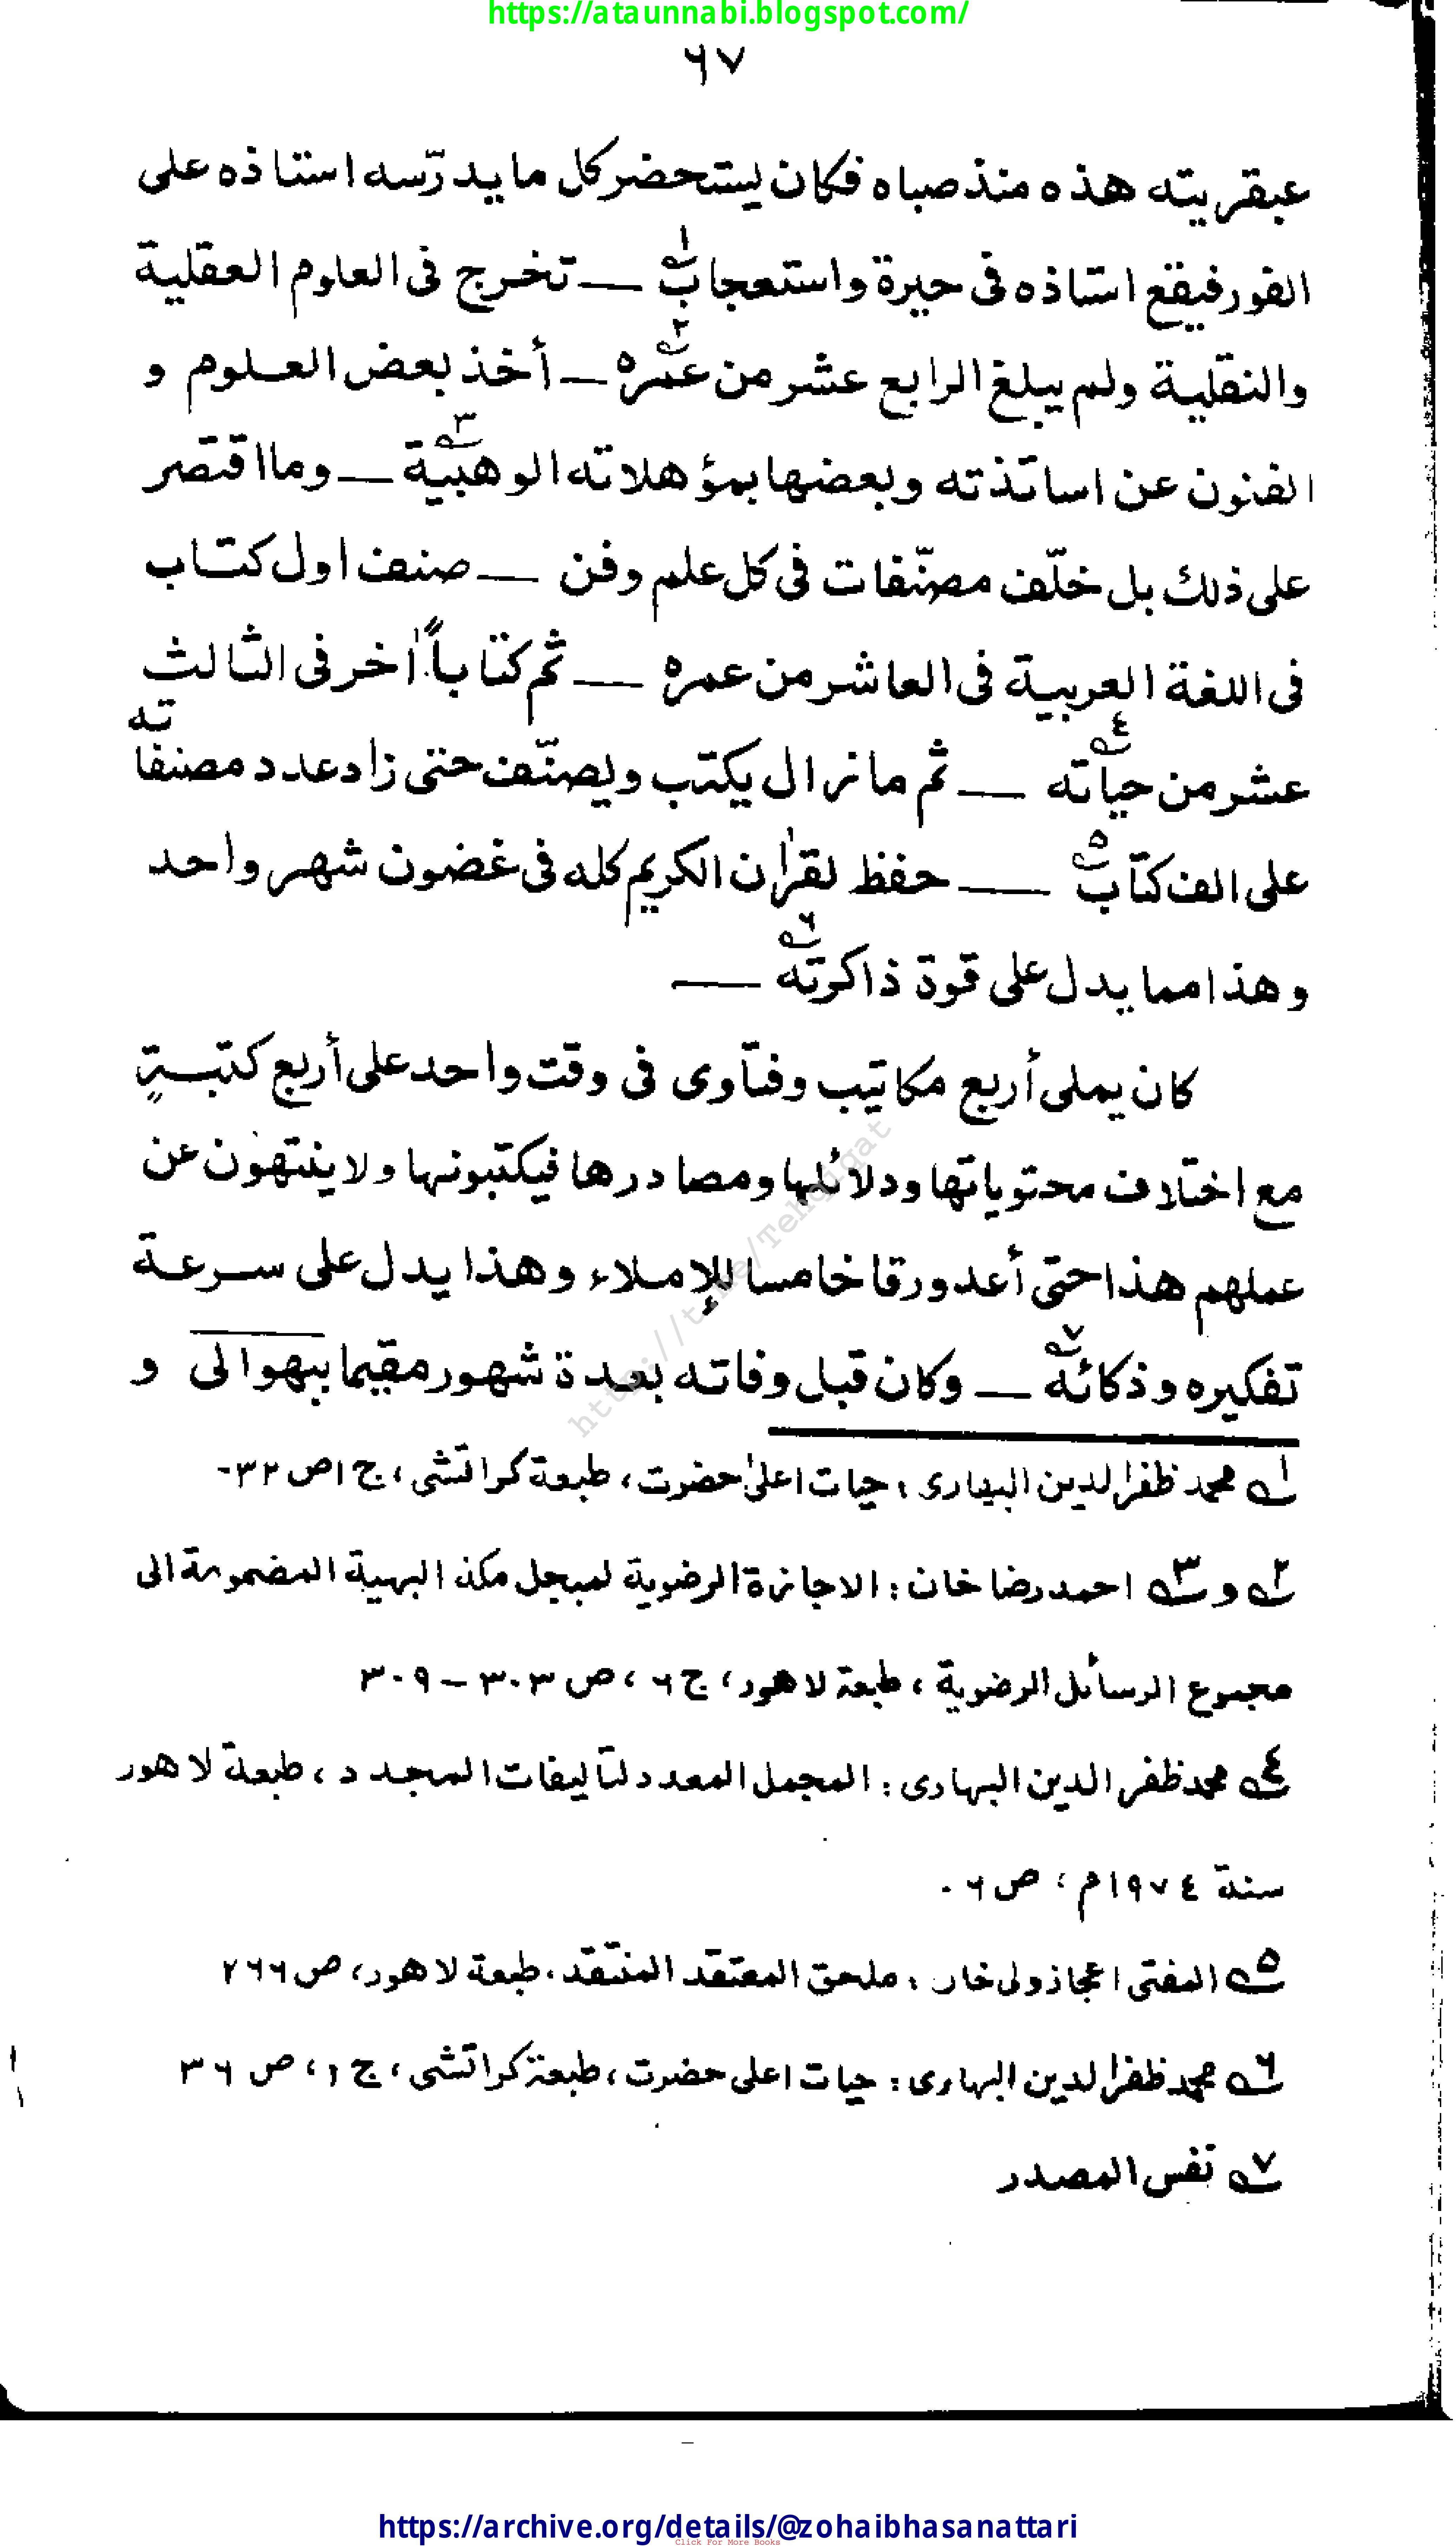 https://ataunnabi.blogspot.com/
٦٧
عبقريته هذه منذ صباه فكان يستحضر كل ما يدرّسه استاذه على
الفور فيقع استاذه فى حيرة واستعجاب١ــه — تخرج فى العلوم العقلية
والنقلية ولم يبلغ الرابع عشر من عمره٢ــه — أخذ بعض العلوم و
الفنون عن اساتذته وبعضها بمؤهلاته الوهبية٣ــه — وما اقتصر
على ذلك بل خلّف مصنّفات فى كل علم وفن — صنف اول كتاب
فى اللغة العربية فى العاشر من عمره — ثم كتاباً اٰخر فى الثالث
عشر من حياته٤ــه — ثم ما زال يكتب ويصنّف حتى زاد عدد مصنفاته
على الف كتاب٥ــه — حفظ لقراٰن الكريم كله فى غضون شهر واحد
وهذا مما يدل على قوة ذاكرته٦ــه —
كان يملى أربع مكاتيب وفتاوى فى وقت واحد على أربع كتبةٍ
مع اختلاف محتوياتها ودلائلها ومصادرها فيكتبونها ولا ينتهون عن
عملهم هذا حتى أعد ورقا خامسا للإملاء وهذا يدل على سرعة
تفكيره وذكائه٧ــه — وكان قبل وفاته بعدة شهور مقيما ببهوالى و
١ــه محمد ظفر الدين البهارى : حيات اعلىٰ حضرت ، طبعة كراتشى ، ج ١ ص ٣٢-
٢ــه و ٣ــه احمد رضا خان : الاجازة الرضوية لمبجل مكة البهية المضمومة الى
مجموع الرسائل الرضوية ، طبعة لاهور ، ج ٦ ، ص ٣٠٣ – ٣٠٩
٤ــه محمد ظفر الدين البهارى : المجمل المعدد لتاليفات المجدد ، طبعة لاهور
سنة ١٩٧٤م ، ص ٦ -
٥ــه المفتى اعجاز ولى خان : ملحق المعتقد المنتقد ، طبعة لاهور ، ص ٢٦٦
٦ــه محمد ظفر الدين البهارى : حيات اعلى حضرت ، طبعة كراتشى ، ج ١ ، ص ٣٦
٧ــه نفس المصدر
https://archive.org/details/@zohaibhasanattari
Click For More Books